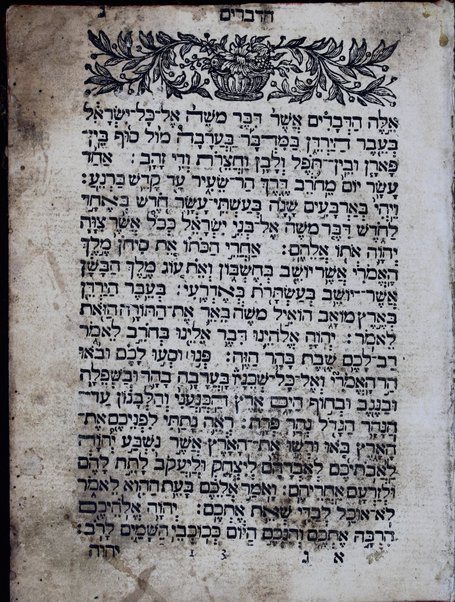 הדברים ג
אֵלֶּה הַדְּבָרִים אֲשֶׁר דִּבֶּר מֹשֶׁה אֶל־כָּל־יִשְׂרָאֵל
בְּעֵבֶר הַיַּרְדֵּן בַּמִּדְבָּר בָּעֲרָבָה מוֹל סוּף בֵּין־
פָּארָן וּבֵין־תֹּפֶל וְלָבָן וַחֲצֵרֹת וְדִי זָהָב׃ אַחַד
עָשָׂר יוֹם מֵחֹרֵב דֶּרֶךְ הַר־שֵׂעִיר עַד קָדֵשׁ בַּרְנֵעַ׃
וַיְהִי בְּאַרְבָּעִים שָׁנָה בְּעַשְׁתֵּי־עָשָׂר חֹדֶשׁ בְּאֶחָד
לַחֹדֶשׁ דִּבֶּר מֹשֶׁה אֶל־בְּנֵי יִשְׂרָאֵל כְּכֹל אֲשֶׁר צִוָּה
יְהוָה אֹתוֹ אֲלֵהֶם׃ אַחֲרֵי הַכֹּתוֹ אֵת סִיחֹן מֶלֶךְ
הָאֱמֹרִי אֲשֶׁר יוֹשֵׁב בְּחֶשְׁבּוֹן וְאֵת עוֹג מֶלֶךְ הַבָּשָׁן
אֲשֶׁר־יוֹשֵׁב בְּעַשְׁתָּרֹת בְּאֶדְרֶעִי׃ בְּעֵבֶר הַיַּרְדֵּן
בְּאֶרֶץ מוֹאָב הוֹאִיל מֹשֶׁה בֵּאֵר אֶת־הַתּוֹרָה הַזֹּאת
לֵאמֹר׃ יְהוָה אֱלֹהֵינוּ דִּבֶּר אֵלֵינוּ בְּחֹרֵב לֵאמֹר
רַב־לָכֶם שֶׁבֶת בָּהָר הַזֶּה׃ פְּנוּ וּסְעוּ לָכֶם וּבֹאוּ
הַר הָאֱמֹרִי וְאֶל־כָּל־שְׁכֵנָיו בָּעֲרָבָה בָהָר וּבַשְּׁפֵלָה
וּבַנֶּגֶב וּבְחוֹף הַיָּם אֶרֶץ הַכְּנַעֲנִי וְהַלְּבָנוֹן עַד־
הַנָּהָר הַגָּדֹל נְהַר פְּרָת׃ רְאֵה נָתַתִּי לִפְנֵיכֶם אֶת־
הָאָרֶץ בֹּאוּ וּרְשׁוּ אֶת־הָאָרֶץ אֲשֶׁר נִשְׁבַּע יְהוָה
לַאֲבֹתֵיכֶם לְאַבְרָהָם לְיִצְחָק וּלְיַעֲקֹב לָתֵת לָהֶם
וּלְזַרְעָם אַחֲרֵיהֶם׃ וָאֹמַר אֲלֵכֶם בָּעֵת הַהִוא לֵאמֹר
לֹא־אוּכַל לְבַדִּי שְׂאֵת אֶתְכֶם׃ יְהוָה אֱלֹהֵיכֶם
הִרְבָּה אֶתְכֶם וְהִנְּכֶם הַיּוֹם כְּכוֹכְבֵי הַשָּׁמַיִם לָרֹב׃
א ג 1 3 יהוה